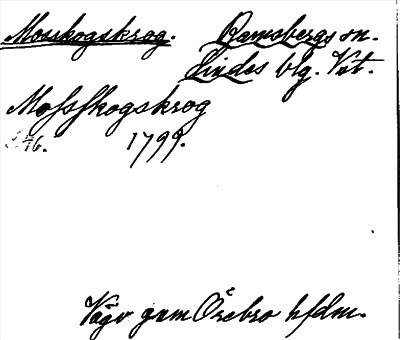 Mosskogskrog. Ramsbergs sn.
Lindes blg. Vst.
Mossskogskrog
1799.
Vägv gnm Örebro hfdm.